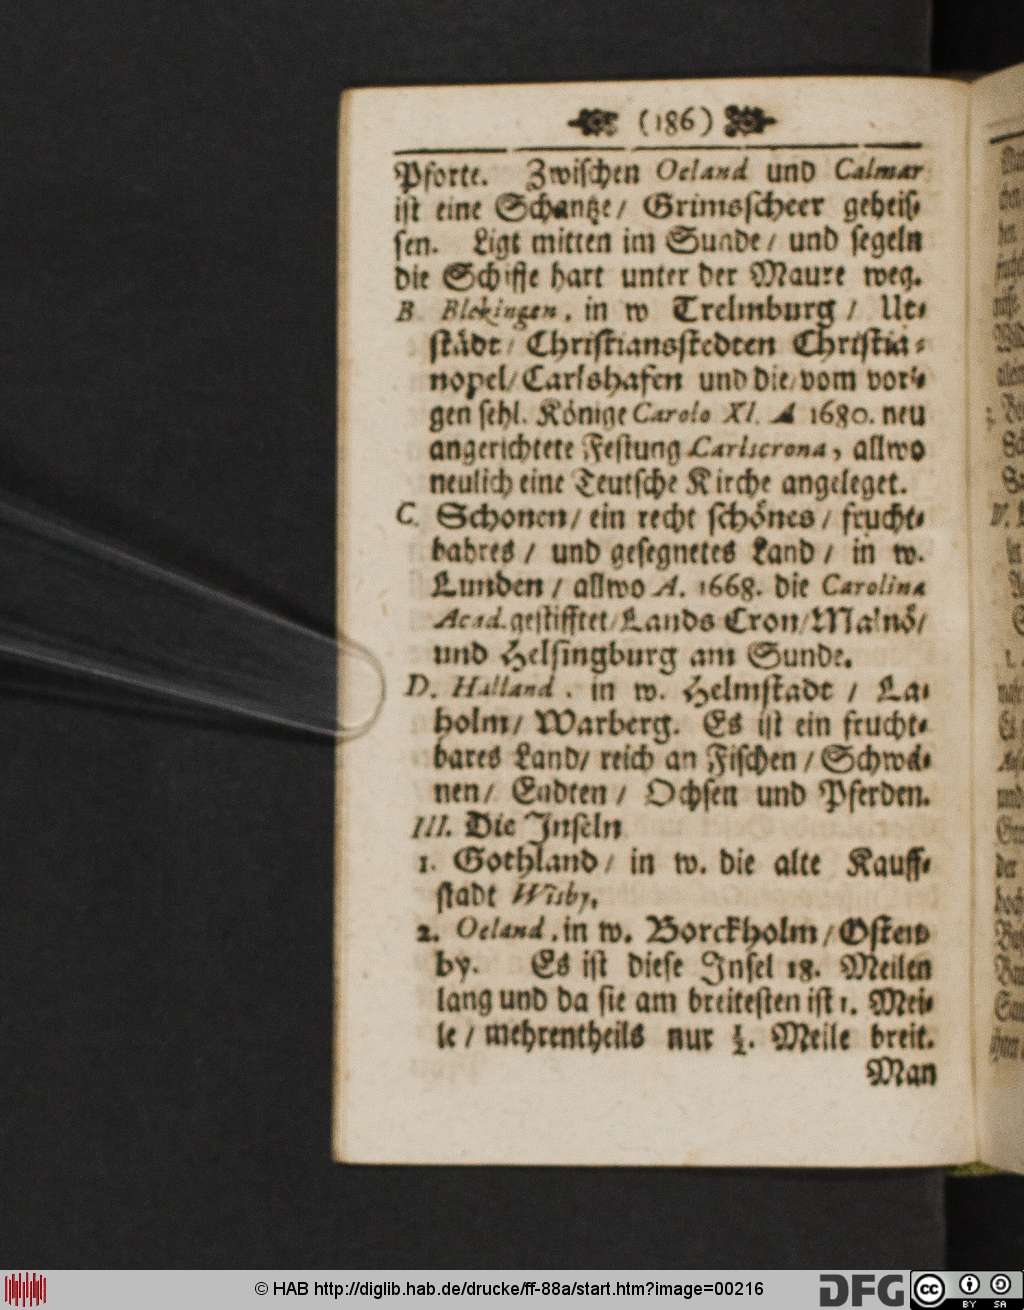 (186)
Pforte. Zwischen Oeland und Calmar
ist eine Schantze/ Grimsscheer geheis⸗
sen. Ligt mitten im Sunde/ und segeln
die Schiffe hart unter der Maure weg.
B Blekingen, in w Trelmburg / Ut⸗
städt/ Christiansstedten Christia⸗
nopel/ Carlshafen und die/ vom vori⸗
gen sehl. Könige Carolo XI. A 1680. neu
angerichtete Festung Carlscrona, allwo
neulich eine Teutsche Kirche angeleget.
C. Schonen/ ein recht schönes/ frucht⸗
bahres / und gesegnetes Land / in w.
Lunden / allwo A. 1668. die Carolina
Acad. gestifftet/ Lands Cron/ Malnö/
und Helsingburg am Sunde.
D. Halland. in w. Helmstadt / La⸗
holm/ Warberg. Es ist ein frucht⸗
bares Land/ reich an Fischen / Schwä⸗
nen/ Endten / Ochsen und Pferden.
III. Die Inseln
1. Gothland/ in w. die alte Kauff⸗
stadt Wisby.
2. Oeland. in w. Borckholm/ Osten⸗
by. Es ist diese Insel 18. Meilen
lang und da sie am breitesten ist 1. Mei⸗
le / mehrentheils nur ½. Meile breit.
Man
© HAB http://diglib.hab.de/drucke/ff-88a/start.htm?image=00216
DFG
cc
BY SA